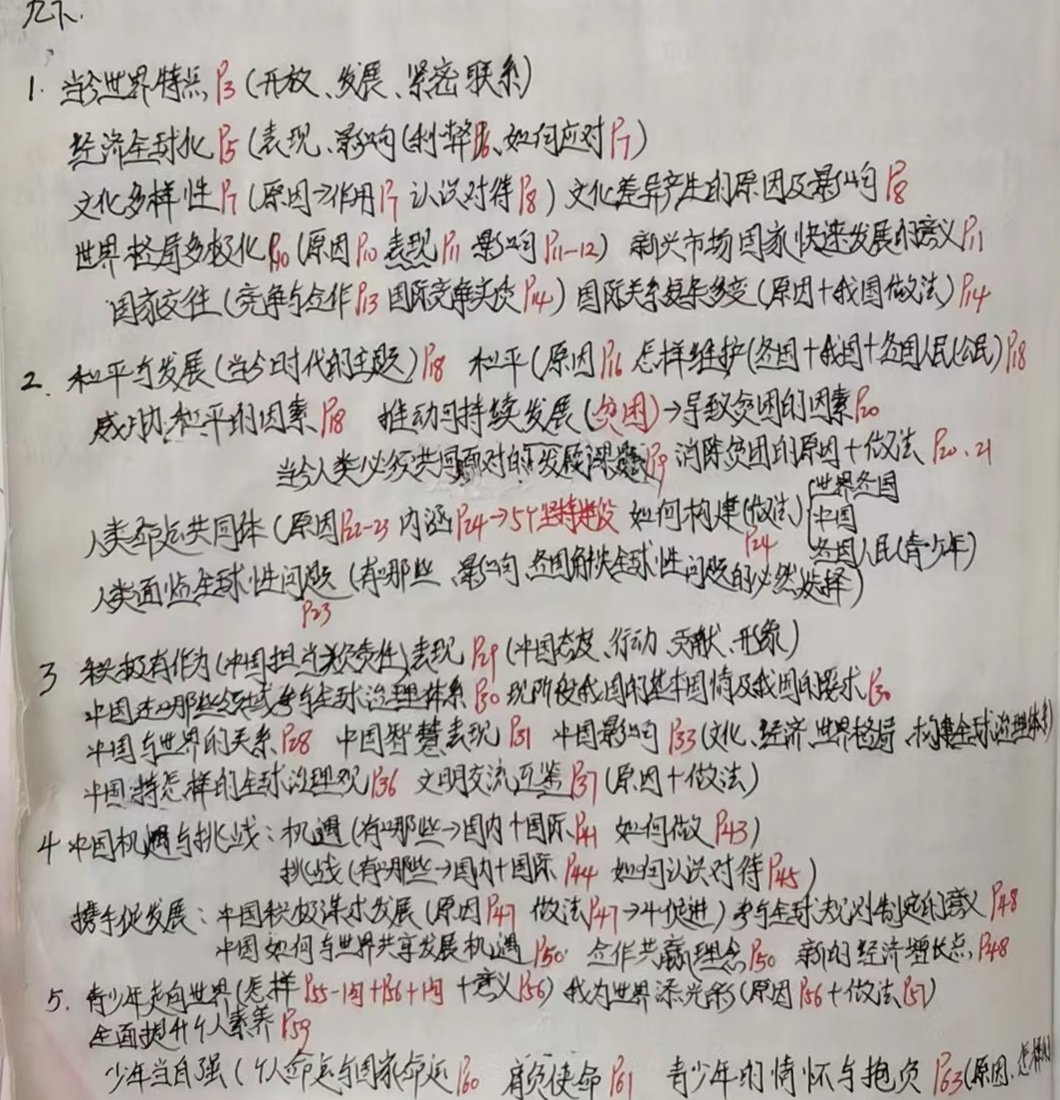 九下.
1. 当今世界特点P3(开放、发展、紧密联系)
经济全球化P5(表现、影响(利弊P6、如何应对P7)
文化多样性P7(原因→作用P7 认识对待P8) 文化差异产生的原因及影响P8
世界格局多极化P10(原因P10 表现P11 影响P11-12) 新兴市场国家快速发展的意义P11
国家交往(竞争与合作P13 国际竞争实质P14) 国际关系复杂多变(原因+我国做法)P14
2. 和平与发展(当今时代的主题)P18 和平(原因P16 怎样维护(各国+我国+各国人民(公民)P18
威胁和平的因素P18 推动可持续发展(贫困)→导致贫困的因素P20
当今人类必须共同面对的发展课题P19 消除贫困的原因+做法 P20、21
人类命运共同体(原因P22-23 内涵P24→5个坚持建设 如何构建(做法)P24 世界各国
中国
各国人民(青少年)
人类面临全球性问题(有哪些、影响、各国解决全球性问题的必然选择)
P23
3 积极有作为(中国担当负责任)表现P29(中国态度、行动、贡献、形象)
中国在哪些领域参与全球治理体系P30 现阶段我国的基本国情及我国的要求P30
中国与世界的关系P28 中国智慧表现P31 中国影响P33(文化、经济、世界格局、构建全球治理体系)
中国持怎样的全球治理观P36 文明交流互鉴P37(原因+做法)
4 中国机遇与挑战:机遇(有哪些→国内+国际P41 如何做P43)
挑战(有哪些→国内+国际P44 如何认识对待P45)
携手促发展:中国积极谋求发展(原因P47 做法P47→4促进) 参与全球规则制定的意义P48
中国如何与世界共享发展机遇P50 合作共赢理念P50 新的经济增长点P48
5. 青少年走向世界(怎样P55-1问+P56+1问+意义P56) 我为世界添光彩(原因P56+做法P57)
全面提升个人素养P59
少年当自强(个人命运与国家命运P60 肩负使命P61 青少年的情怀与抱负P63(原因、怎样做